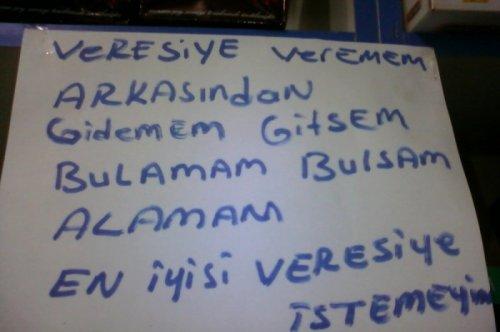 VERESİYE VEREMEM
ARKASINdAN
GİdEMEM GİtSEM
BULAMAM BULSAM
ALAMAM
EN İYİSİ VERESİYE
İSTEMEYİN